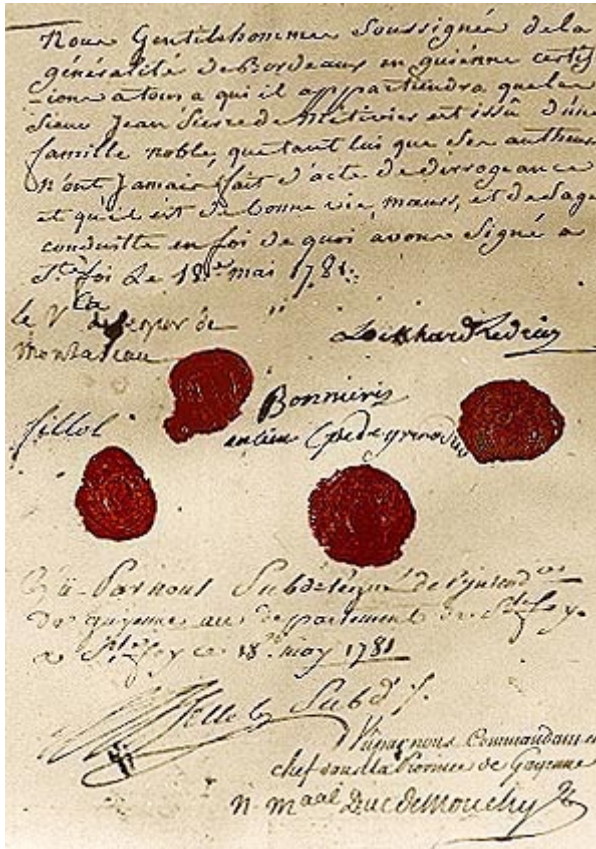 Nous Gentilshommes Soussignés de la
généralité de Bordeaux en guiénne certif
-ions a tous a qui il appartiendra que le
Sieur Jean Serre de Métivier est issû d'une
famille noble, que tant lui que ses autheurs
n'ont Jamais fait d'acte de dérrogeance
et qu'il est de bonne vie, mœurs, et de sage
conduitte en foi de quoi avons Signé a
Ste foi Le 18e mai 1781.
le Vte de Segur de
Montazeau
Bonnieres
fillol
ancien Cpne de grenadiers
Vû Par nous Subdélégué de l'intendce
de guyenne au departement de Ste foy.
a Ste foy ce 18 may 1781
Subd.
Vû par nous Commandant en
chef dans la Province de Guyenne
n. maal Duc de Mouchy